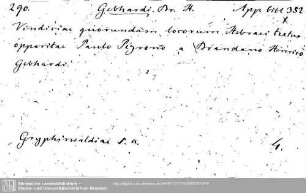 290. Gebhardi, Br. H. App. bibl. 352
x
Vindiciae quorundam locorum Hebraei textus
oppositae Paulo Pezrono a Brandano Henrico
Gebhardi.
Gryphiswaldiae s. a. 4.
Sächsische Landesbibliothek -
Staats- und Universitätsbibliothek Dresden